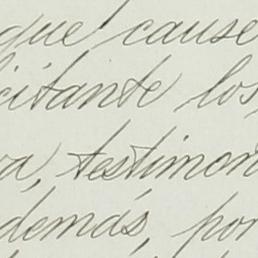 que cause
citante los
va, testimon
demás, por